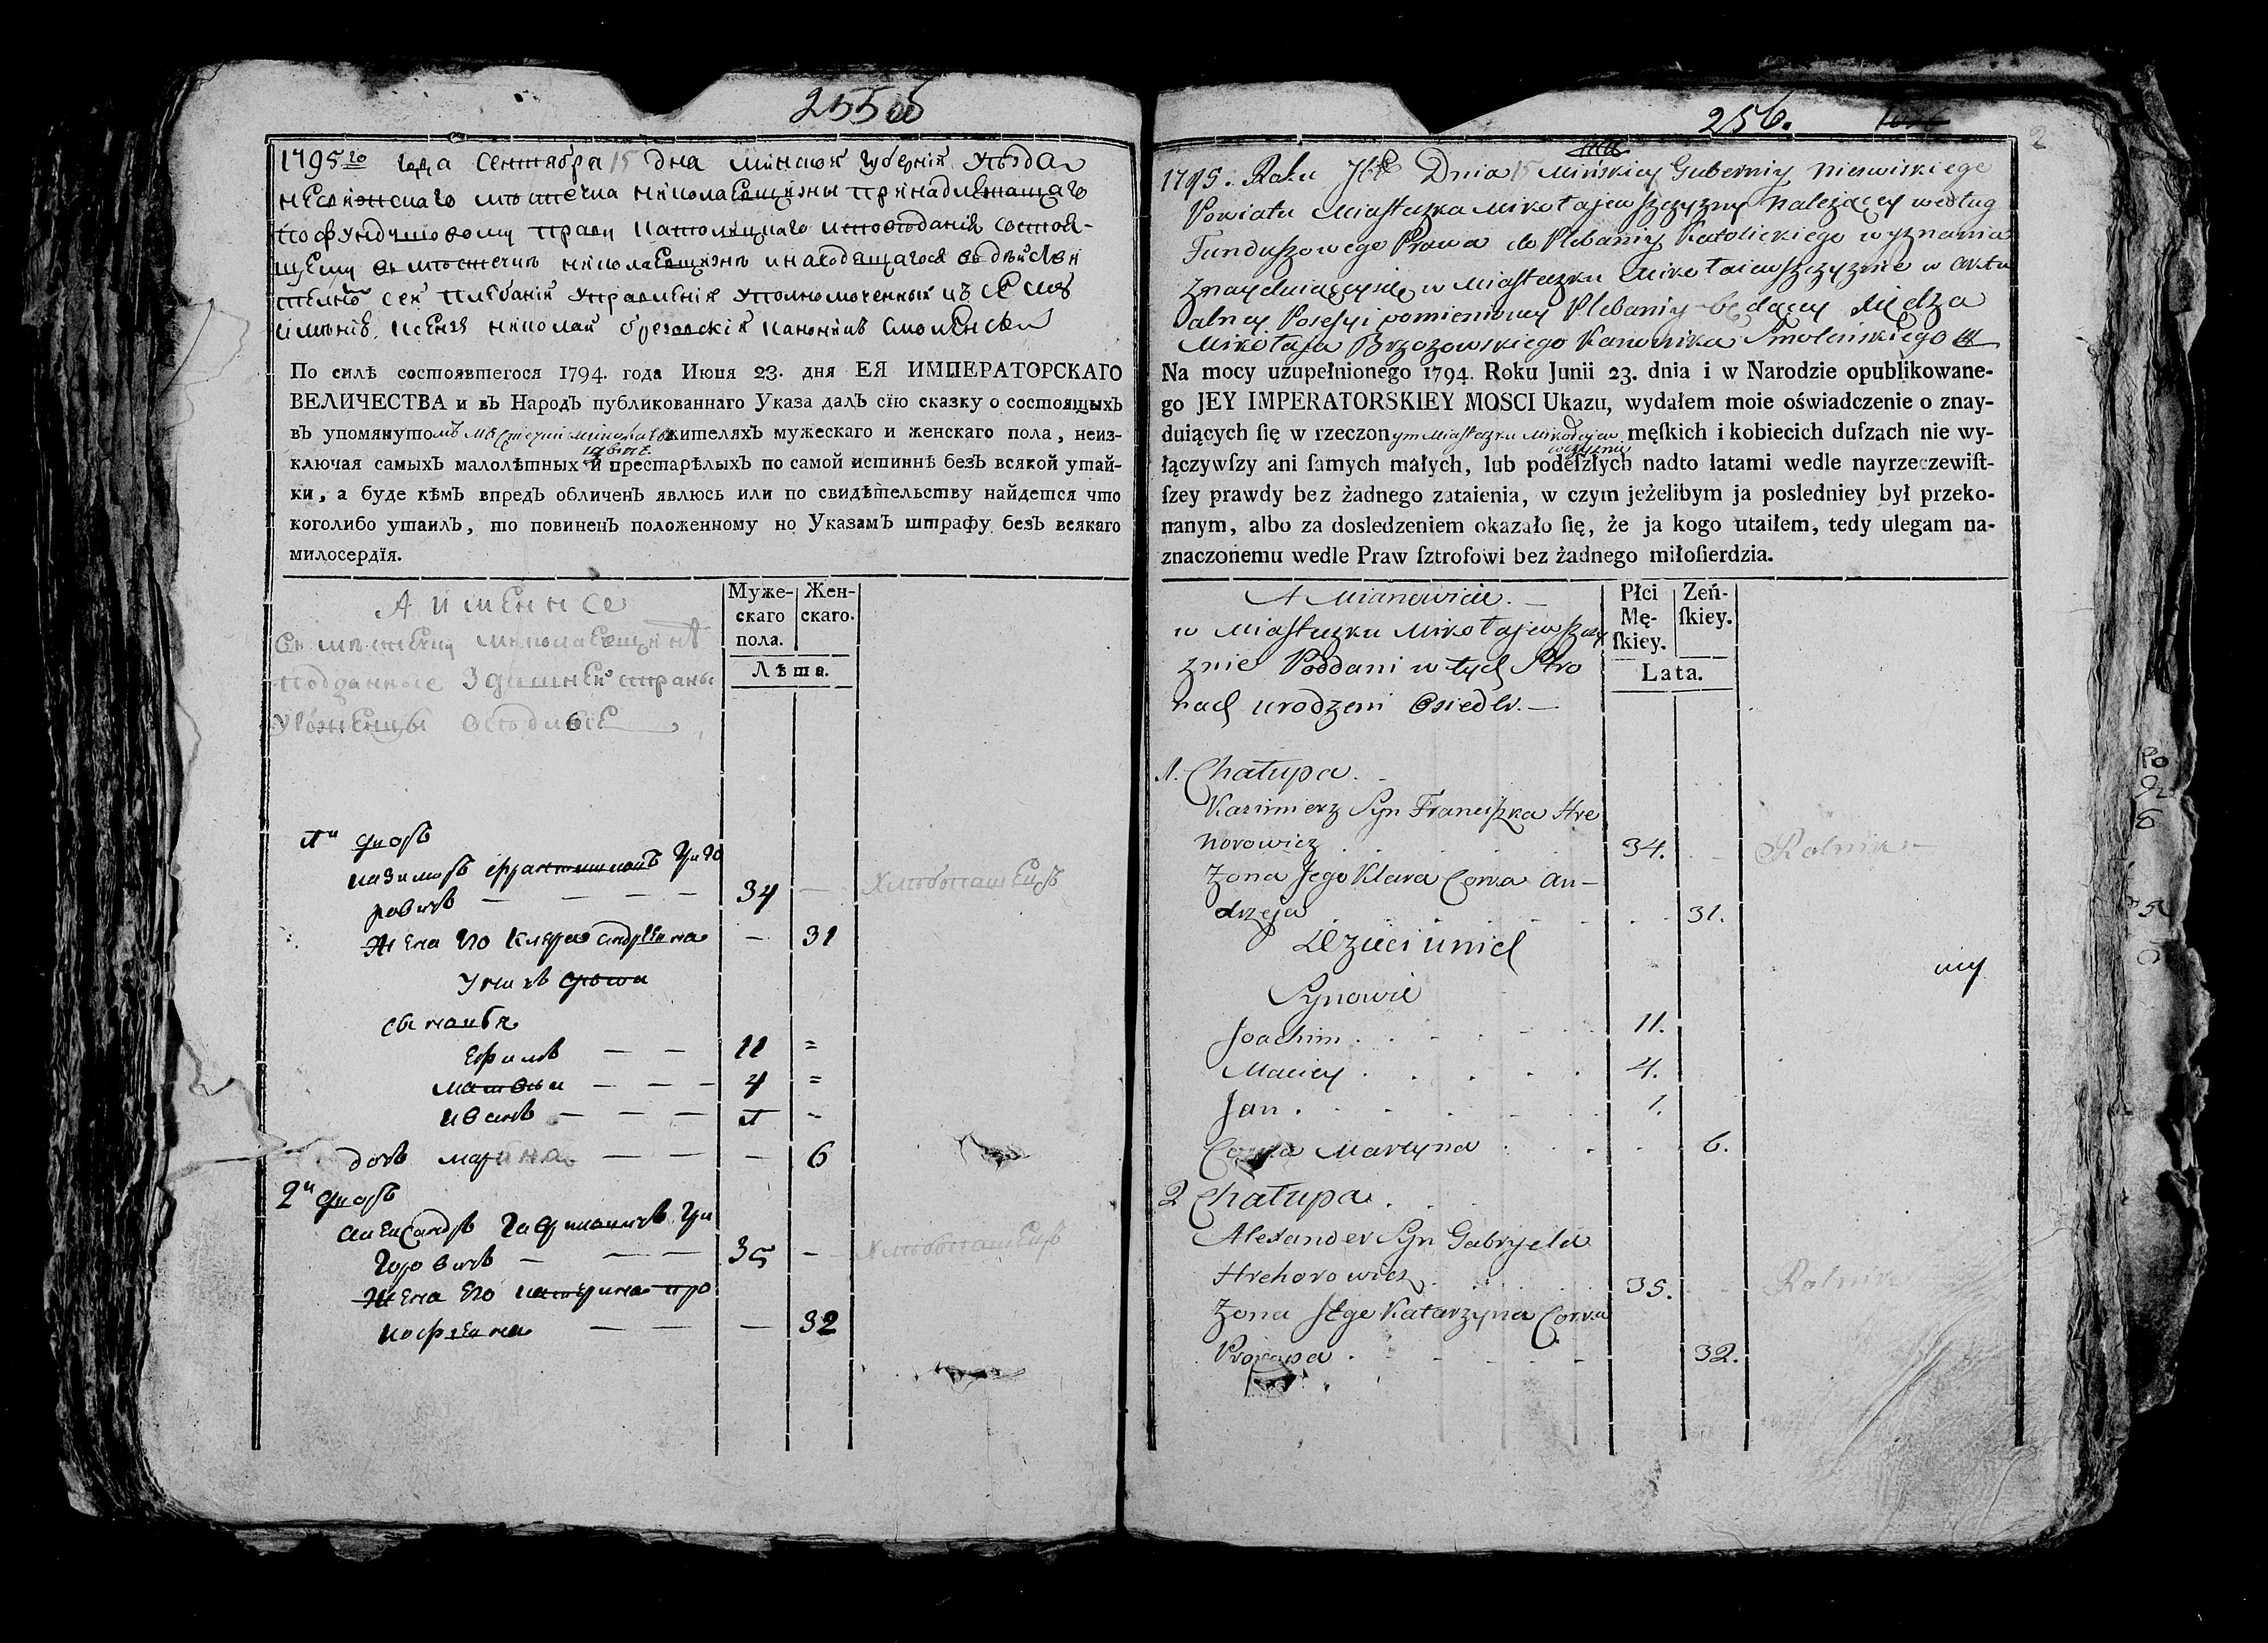 255об
1795го года Сентября 15 дня Минской Губернїи уезда
несвижскаго местечка николаевщизны принадлежащаго
по фундушовому праву католицкаго исповеданїя состоя-
щему в местечке николаевщизне и находящагося в действи
тельно сей плебанїи управленїя уполномоченный
имение. ксенз николай бржозовскїй каноник Смоленски
По силѣ состоявшегося 1794. года Июня 23. дня ЕЯ ИМПЕРАТОРСКАГО
ВЕЛИЧЕСТВА и вЪ НародЪ публикованнаго Указа далЪ сїю сказку о состоящыхЪ
вЪ упомянутомъ местечки николаев жителяхЪ мужескаго и женскаго пола, неиз-
ключая самыхЪ малолѣтныхЪ и престарѣлыхЪ по самой истиннѣ безЪ всякой утай-
ки, а буде кѣмЪ впредЪ обличенЪ явлюсь или по свидѣтельству найдется что
коголибо утаилЪ, то повиненЪ положенному по УказамЪ штрафу безЪ всякаго
милосердїя.
А именно
в местечку николаевщизне
подданные здешней страны
уроженцы оседлые
Муже-
скаго
пола.
Жен-
скаго.
Лѣта.
1й двор
казимер францишков Григо
рович — — — — 34 — Хлебопашец
Жена его Клара андреена — 31
У них дети
сыновя
Ефим — — 11 =
матвеи — — — 4 =
иван — — — 1 -
доч марина — — — 6
2й двор
александр Гаврилович Гри
горович — — — 35 — Хлебопашец
Жена его катерина про
кофеена — — — 32
256.
2
1795. Roku Dnia 15 Minskiey Guberniy Nieswiskiego
Powiatu Miasteczka Mikołajewszczyzny należący według
Funduszowego Prawa do Plebaniy Katolickiego wyznania
Znayduiącey się w Miasteczku Mikołaiewszczyznie w aktu
alney Posesyi pomienioney Plebaniy będący Xiędza
Mikołaja Brzozowskiego Kanonika Smoleńskiego
Na mocy uzupełnionego 1794. Roku Junii 23. dnia i w Narodzie opublikowane-
go JEY IMPERATORSKIEY MOSCI Ukazu, wydałem moie oświadczenie o znay-
duiących ſię w rzeczonym Miasteczku Mikołajew męſkich i kobiecich duſzach nie wy-
szczyznie
łączywſzy ani ſamych małych, lub podeſzłych nadto latami wedle nayrzeczewiſt-
ſzey prawdy bez żadnego zataienia, w czym jeżelibym ja posledniey był przeko-
nanym, albo za dosledzeniem okazało ſię, że ja kogo utaiłem, tedy ulegam na-
znaczonemu wedle Praw ſztrofowi bez żadnego miłoſierdzia.
A Mianowicie.
w Miasteczku Mikołajewszczy
znie Poddani w tych Stro
nach urodzeni Osiedli.
Płci
Mę-
ſkiey.
Zeń-
ſkiey.
Lata.
1. Chałupa.
Kazimierz Syn Franciszka Hre
horowicz . . . 34. - Rolnik
Zona Jego Klara Corka An-
drzeja . . . 31.
Dzieci u nich
Synowie
Joachim . . . 11.
Maciey . . . 4.
Jan . . . 1.
Corka Marcyna . . . 6.
2 Chałupa.
Alexander Syn Gabryela
Hrehorowicz . . . 35. Rolnik
Zona Jego Katarzyna Corka
Prokopa . . . 32.